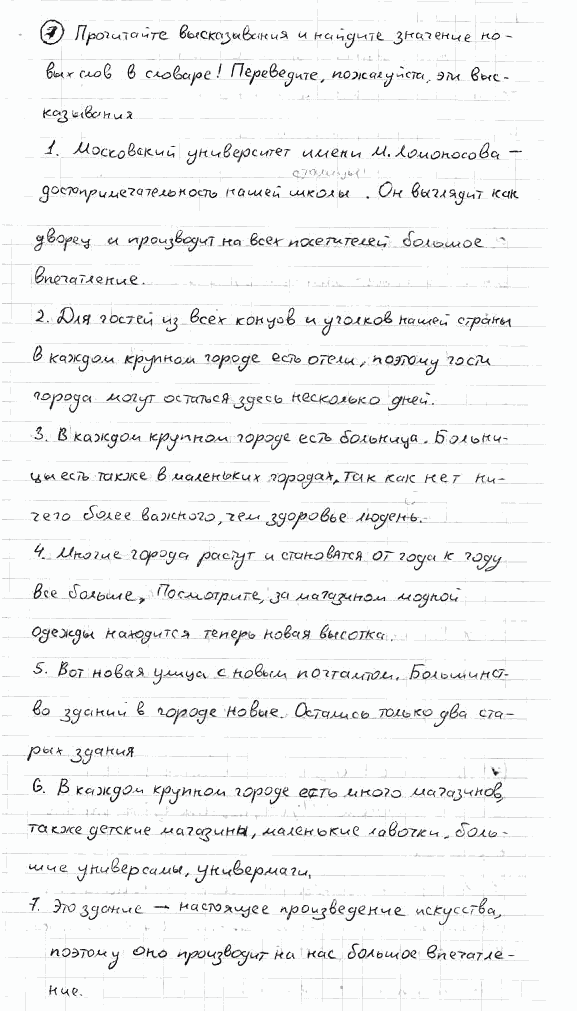 7 Прочитайте высказывания и найдите значение но-
вых слов в словаре! Переведите, пожалуйста, эти выс-
казывания
1. Московский университет имени М. Ломоносова –
столицы!
достопримечательность нашей школы. Он выглядит как
дворец и производит на всех посетителей большое
впечатление.
2. Для гостей из всех концов и уголков нашей страны
в каждом крупном городе есть отели, поэтому гости
города могут остаться здесь несколько дней.
3. В каждом крупном городе есть больница. Больни-
цы есть также в маленьких городах, так как нет ни-
чего более важного, чем здоровье людень.
4. Многие города растут и становятся от года к году
все больше, Посмотрите, за магазином модной
одежды находится теперь новая высотка.
5. Вот новая улица с новым почтамтом. Большинст-
во зданий в городе новые. Остались только два ста-
рых здания
6. В каждом крупном городе есть много магазинов,
также детские магазины, маленькие лавочки, боль-
шие универсамы, универмаги.
7. Это здание – настоящее произведение искусства,
поэтому оно производит на нас большое впечатле-
ние.